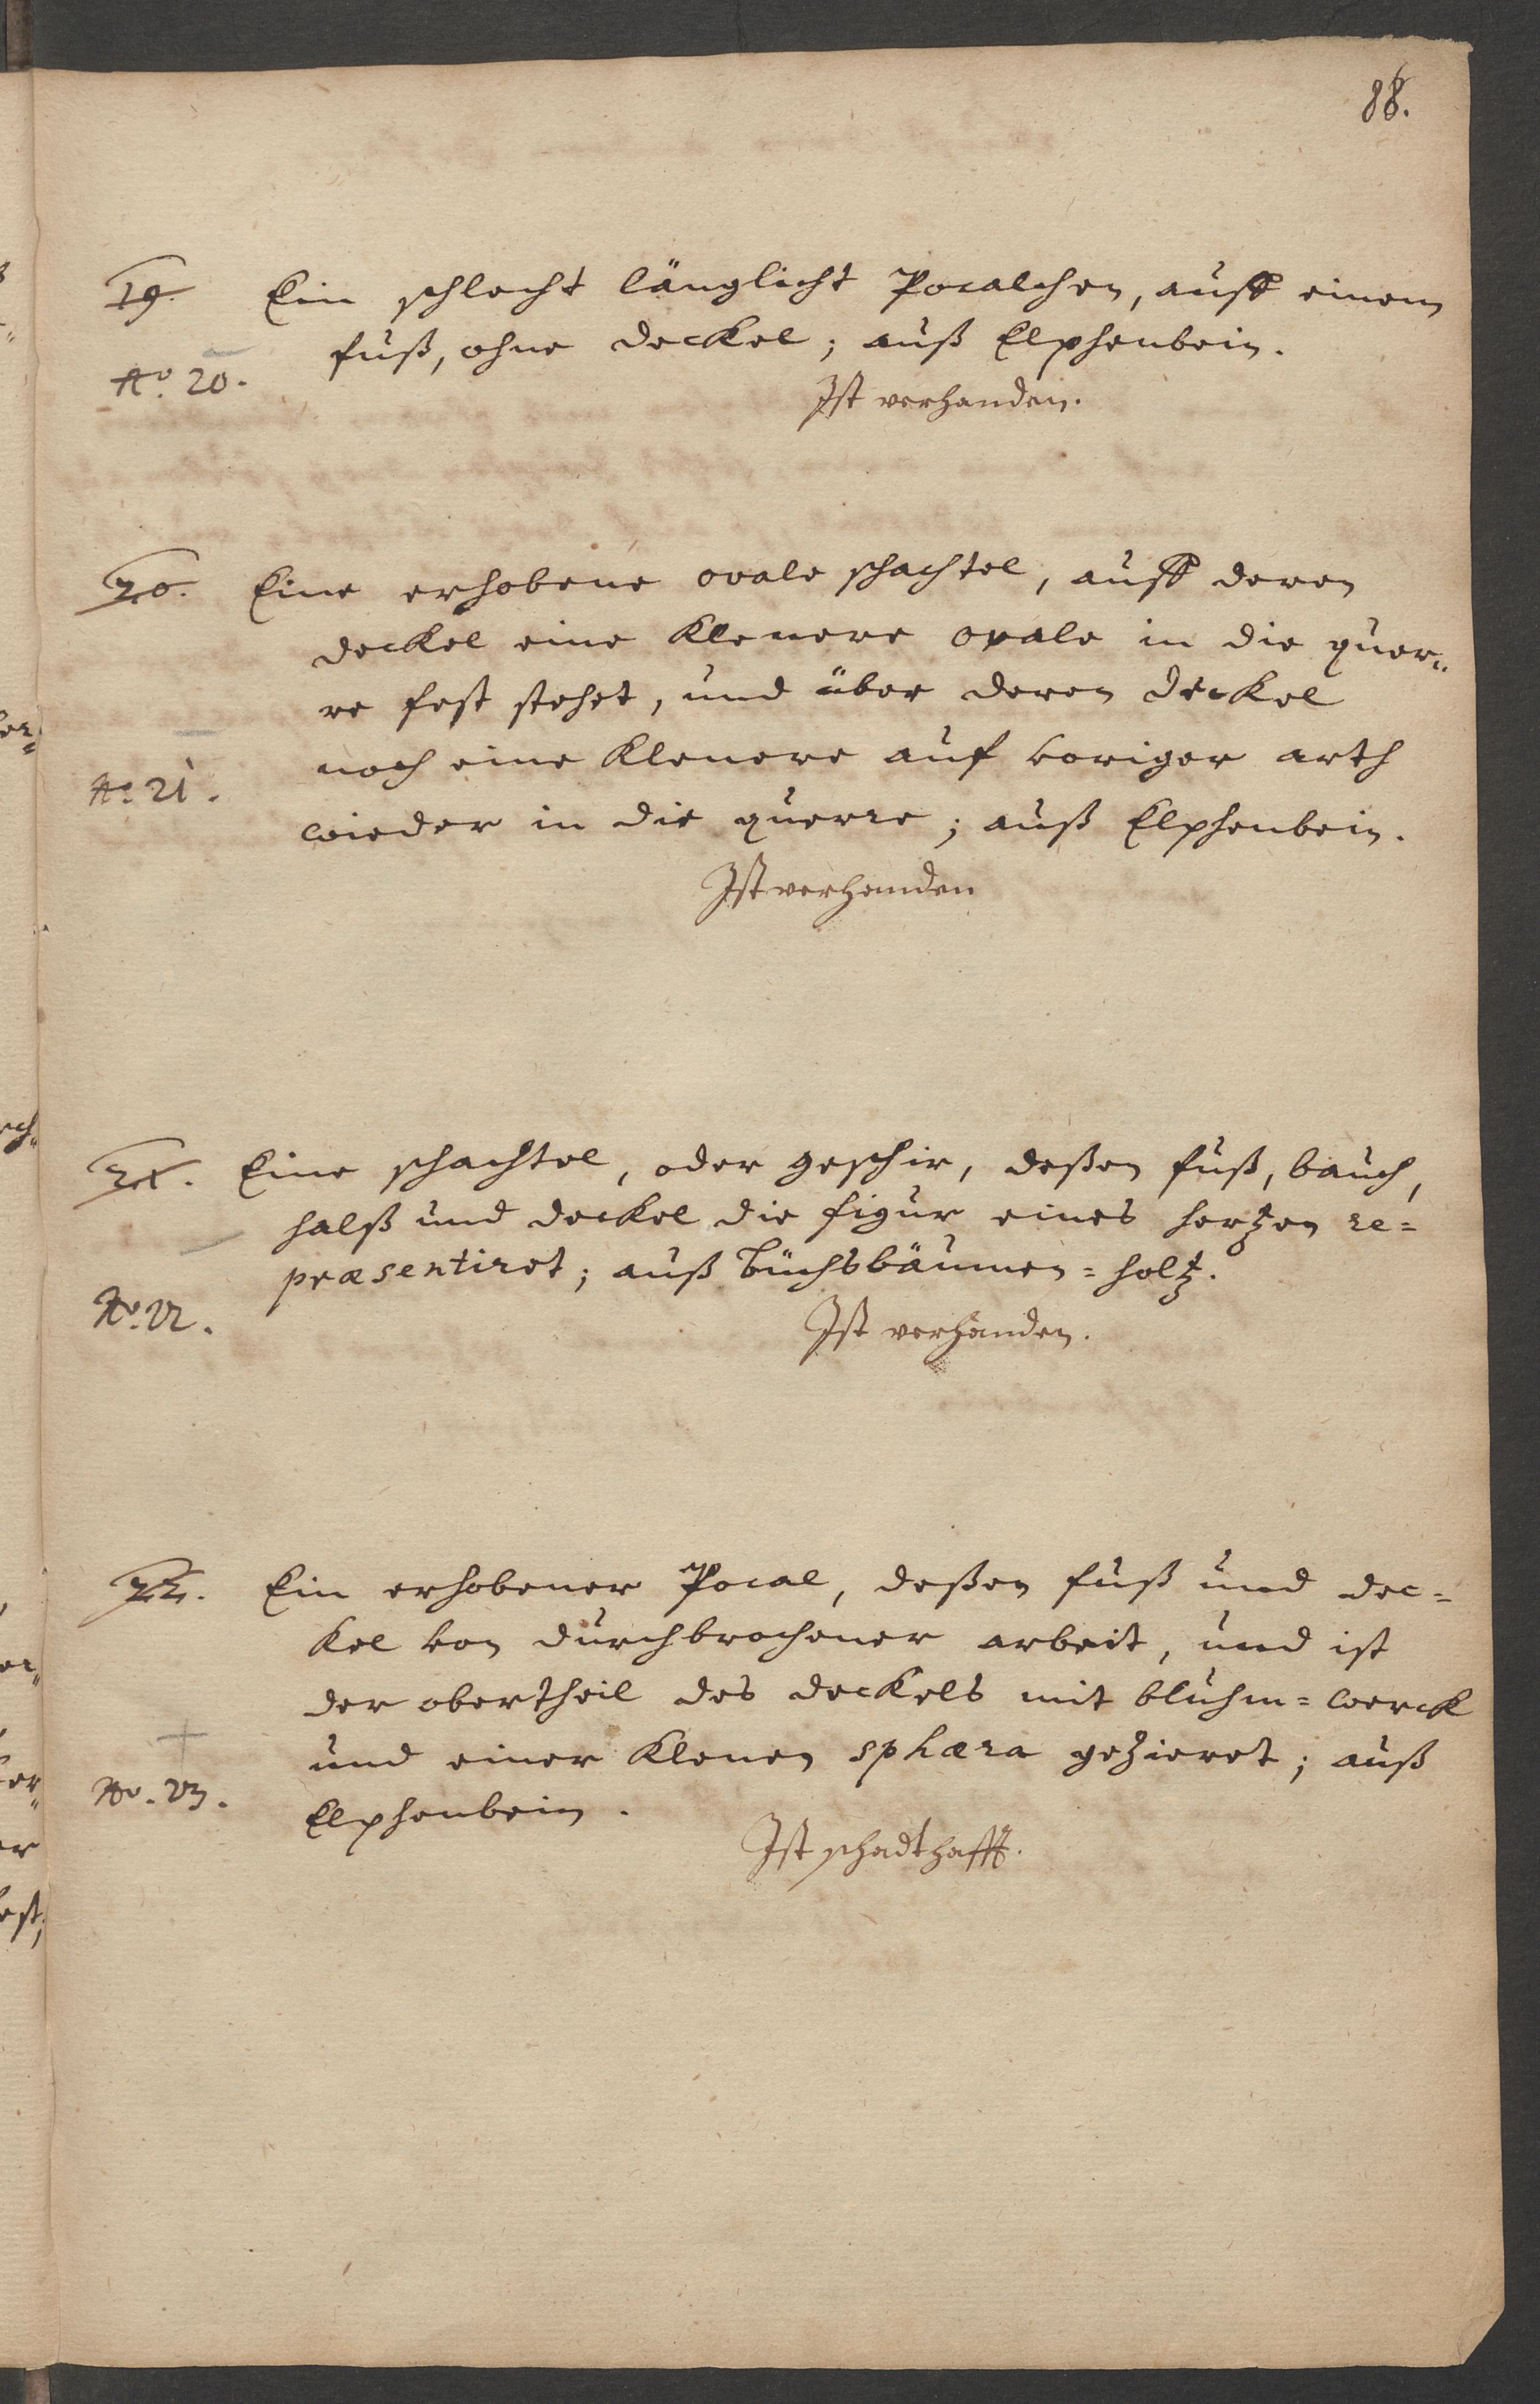 88.
19. Ein schlecht länglicht Pocalchen, auff einem
fuß, ohne deckel; auß Elphenbein.
No. 20.
Ist verhanden.
20. Eine erhobene ovale schachtel, auff deren
deckel eine Klenere ovale in die quer„
re fest stehet, und über deren deckel
noch eine Klenere auf voriger arth
No. 21.
wieder in die querre; auß Elphenbein.
Ist verhanden
21. Eine schachtel, oder geschir, deßen fuß, bauch,
halß und deckel die figur eines hertzen re=
præsentiret; auß büchsbäumen=holtz.
No. 22.
Ist verhanden.
22. Ein erhobener Pocal, deßen fuß und dec=
kel von durchbrochener arbeit, und ist
der obertheil des deckels mit bluhm=werck
und einer Klenen sphæra gezieret; auß
No. 23.
Elphenbein.
Ist schadthafft.